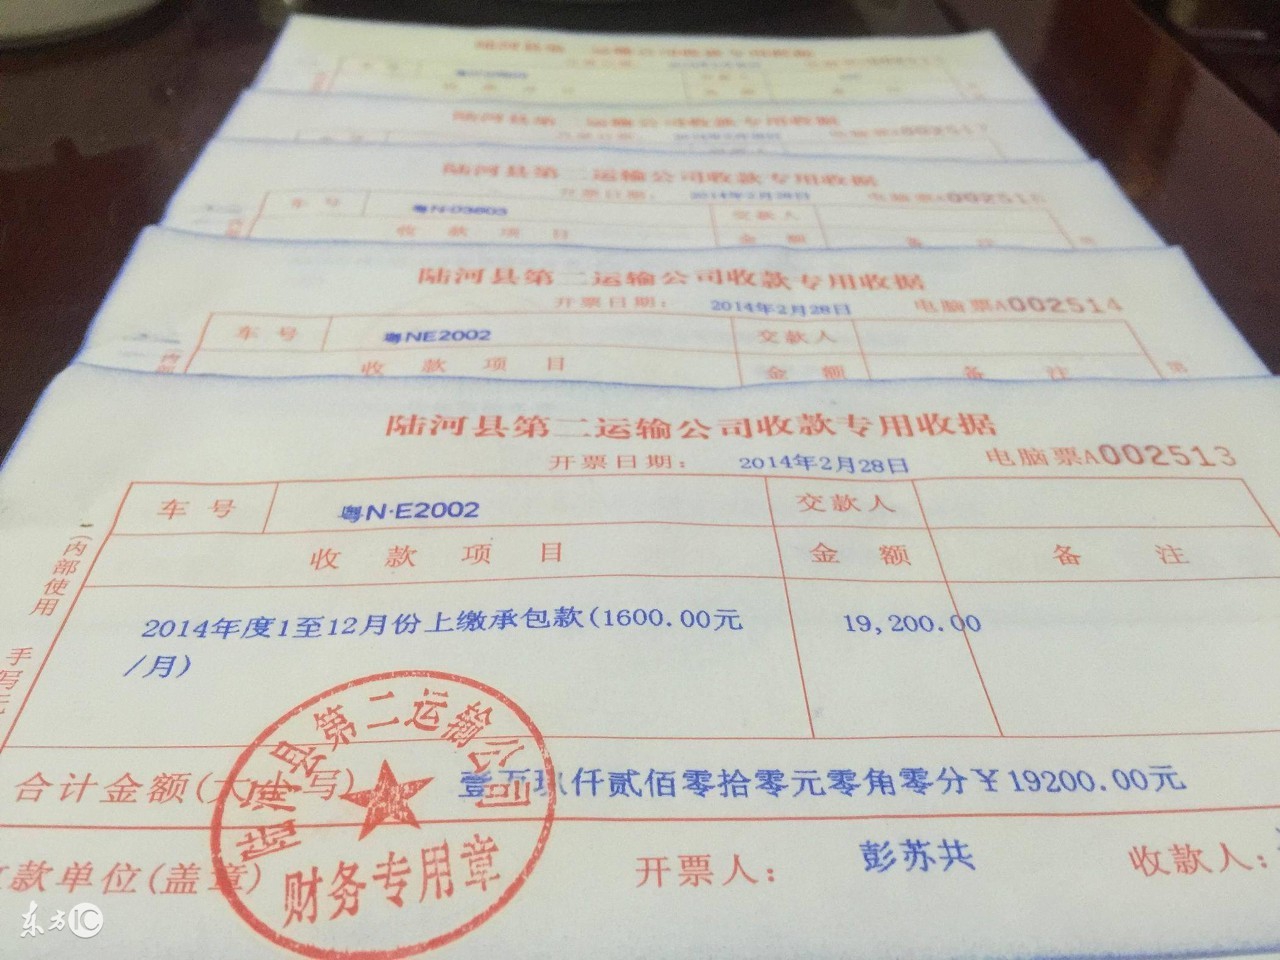 陆河县第二运输公司收款专用收据
陆河县第二运输公司收款专用收据
002517
陆河县第二运输公司收款专用收据
开票日期： 2014年2月28日 电脑票A
车号 粤N·03603 交款人
收款项目 金额 备注
陆河县第二运输公司收款专用收据
开票日期： 2014年2月28日 电脑票A002514
车号 粤NE2002 交款人
收款项目 金额 备注 第
内部
陆河县第二运输公司收款专用收据
开票日期： 2014年2月28日 电脑票A002513
车号 粤N·E2002 交款人
收款项目 金额 备注
2014年度1至12月份上缴承包款(1600.00元 19,200.00
/月)
(内部使用 手写无
合计金额(大小写) 壹万玖仟贰佰零拾零元零角零分￥19200.00元
款单位(盖章) 开票人： 彭苏共 收款人：
陆河县第二运输公司
财务专用章
东方IC